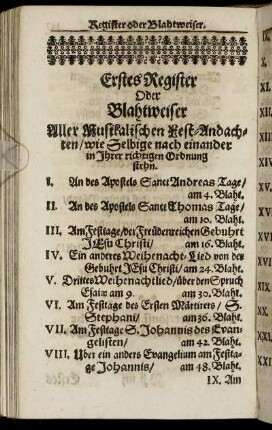 Register oder Blahtweiser.
Erstes Register
Oder
Blahtweiser
Aller Musikalischen Fest/Andach-
ten/wie Selbige nach einander
in Jhrer richtigen Ordnung
stehn.
I. An des Apostels Sanct Andreas Tage/
am 4. Blaht.
II. An des Apostels Sanct Thomas Tage/
am 10. Blaht.
III. Am Festage/der Freüdenreichen Gebuhrt
JEsu Christi/ am 16. Blaht.
IV. Ein anderes Weihenacht-Lied von der
Gebuhrt JEsu Christi/ am 24. Blaht.
V. Drittes Weihenachtlied/über den Spruch
Esaiæ am 9. am 30. Blaht.
VI. Am Festage des Ersten Märtirers/ S.
Stephani/ am 36. Blaht.
VII. Am Festtage S. Johannis des Evan-
gelisten/ am 42. Blaht.
VIII. Über ein anders Evangelium am Festa-
ge Johannis/ am 48. Blaht.
IX. Am
X.
XI.
XI
XX
XXI